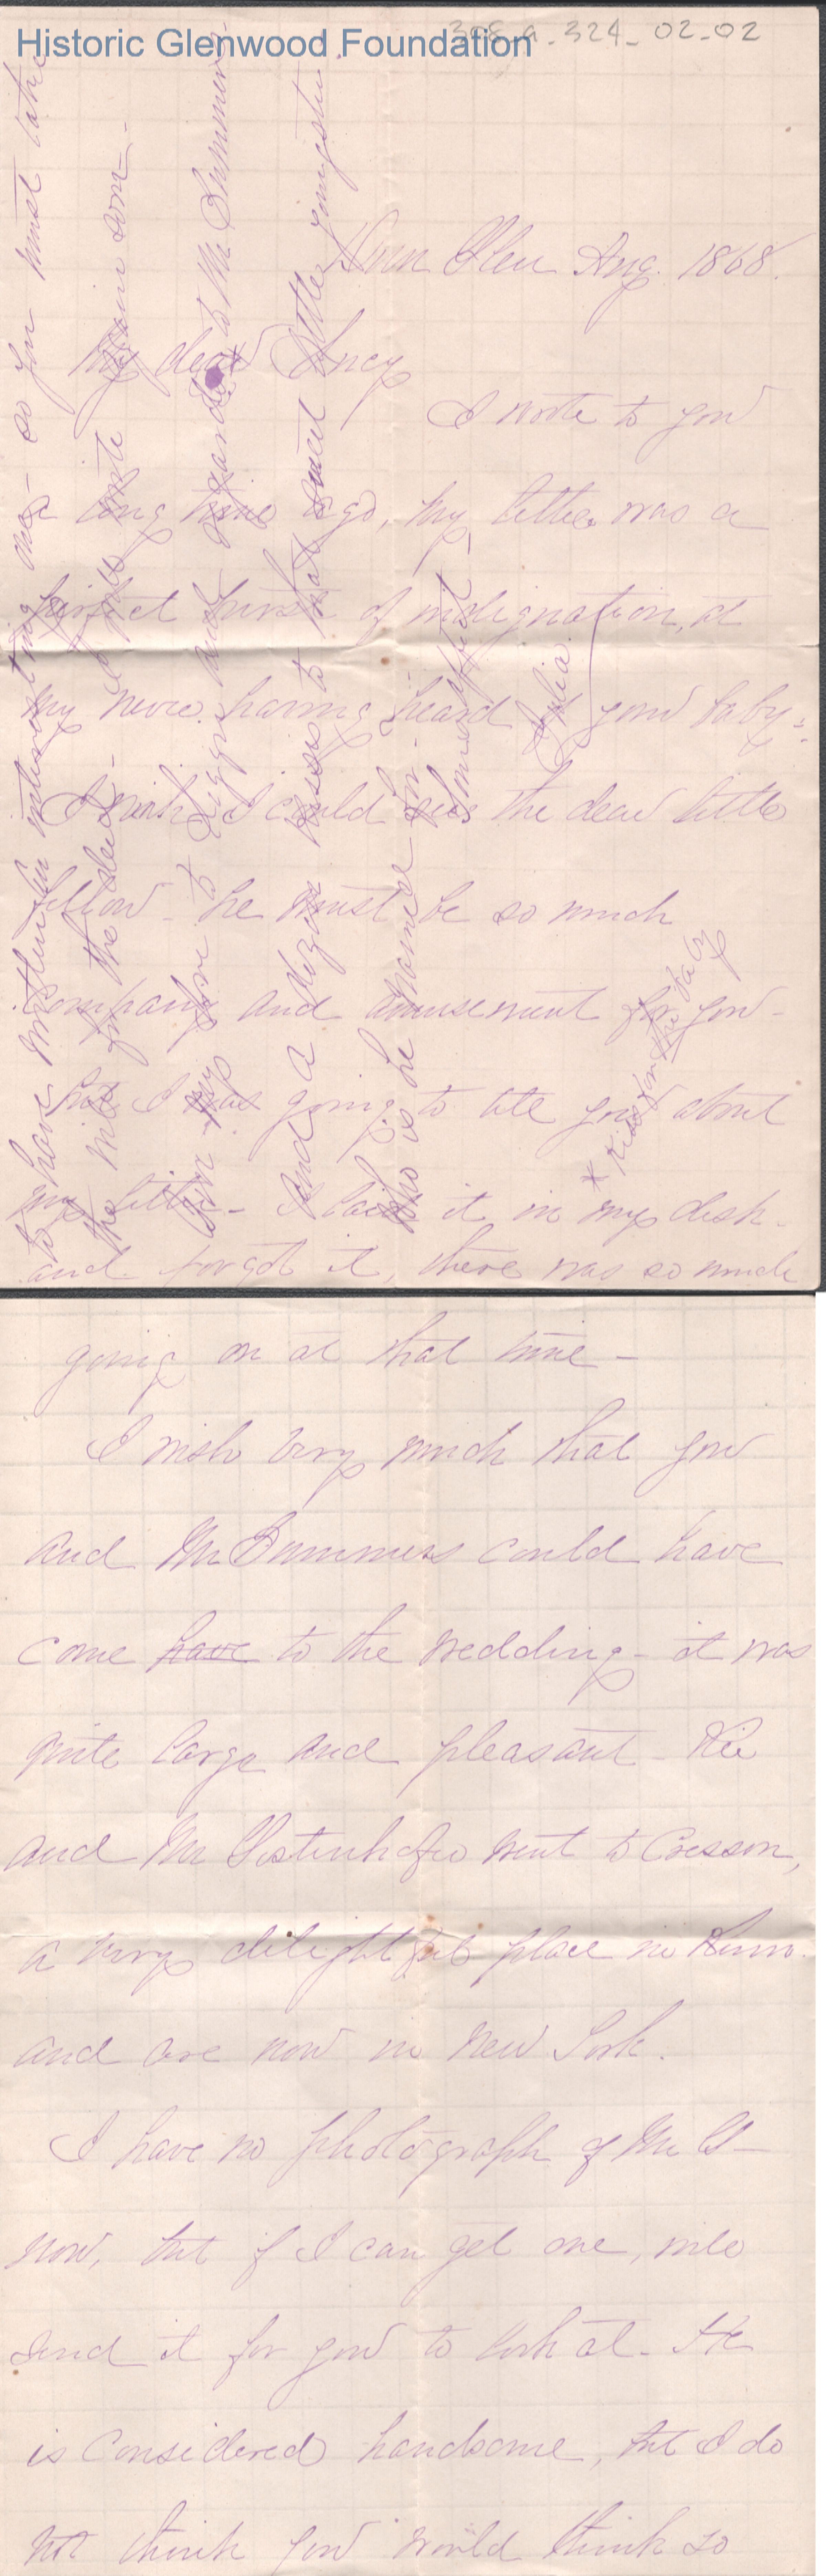 Historic Glenwood Foundation
308-a-324-02-02
Glen Aug. 1868.
My dear Lucy
I wrote to you
a long time ago, my letter was a
perfect burst of indignation, at
my never having heard of your baby.
I wish I could see the dear little
fellow - he must be so much
company and amusement for you -
but I was going to tell you about
my letter - I laid it in my desk -
and forgot it, there was so much
going on at that time -
I wish very much that you
and Mr Summers could have
come have to the wedding - it was
quite large and pleasant -
and Mr went to Cresson,
a very delightful place in Penn.
and are now in New York.
I have no photograph of Mr
now, but if I can get one, will
send it for you to look at - He
is considered handsome, but I do
not think you would think so
to have written an interesting one - so you must take
the will for the deed - I will write again soon -
Give my love to and regards to Mr Summers -
And a dozen kisses to that sweet little youngster.
Who is he named for -
Your affect -
Julia
* Kiss for the baby